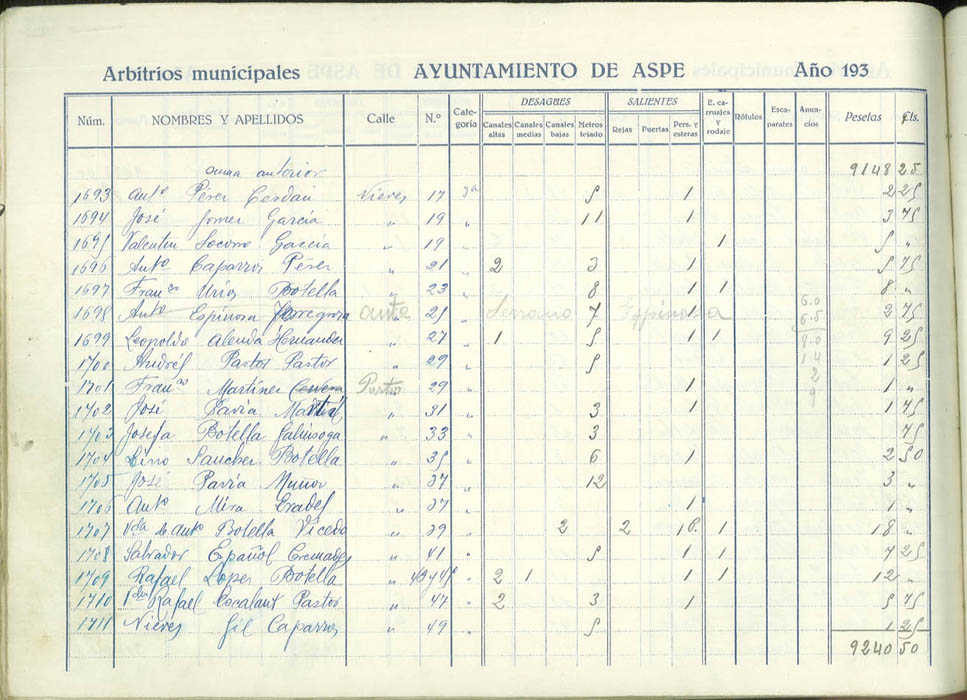 Arbitrios municipales AYUNTAMIENTO DE ASPE Año 193
Núm. NOMBRES Y APELLIDOS Calle N.º Cate-goría DESAGUES SALIENTES E. ca-rruajes y rodaje Rótulos Esca-parates Anun-cios Pesetas Cts.
Canales altas Canales medias Canales bajas Metros tejado Rejas Puertas Pers. y esteras
suma anterior 9148 25
1693 Antº Pérez Cerdán Nieves 17 3ª 9 1 2 25
1694 José Gomez García " 19 " 11 1 3 75
1695 Valentin Socorro García " 19 " 1 5 "
1696 Antº Caparros Pérez " 21 " 2 3 1 5 75
1697 Franco Urios Botella " 23 " 8 1 1 8 "
1698 Antº Espinosa ante Serrano Espinosa " 25 " 7 1 2 75
1699 Leopoldo Alenda Hernandez " 27 " 1 5 1 1 9 25
1700 Andrés Pastor Pastor " 29 " 5 1 25
1701 Franco Martinez Cervera Pastor " 29 " 1 1 "
1702 José Pavia " 31 " 3 1 1 75
1703 Josefa Botella Galinsoga " 33 " 3 75
1704 Lino Sanchez Botella " 35 " 6 1 2 50
1705 José Pavia Munoz " 37 " 12 3 "
1706 Antº Mira Erades " 37 " 1 1 "
1707 Vda de Antº Botella Vicedo " 39 " 2 2 1 P. 1 18 "
1708 Salvador Español Cremades " 41 " 5 1 1 7 25
1709 Rafael Lopez Botella " 43y45 " 2 1 1 1 12 "
1710 Rafael Escalant Pastor " 47 " 2 3 1 5 75
1711 Nieves Gil Caparros " 49 " 5 1 25
9240 50